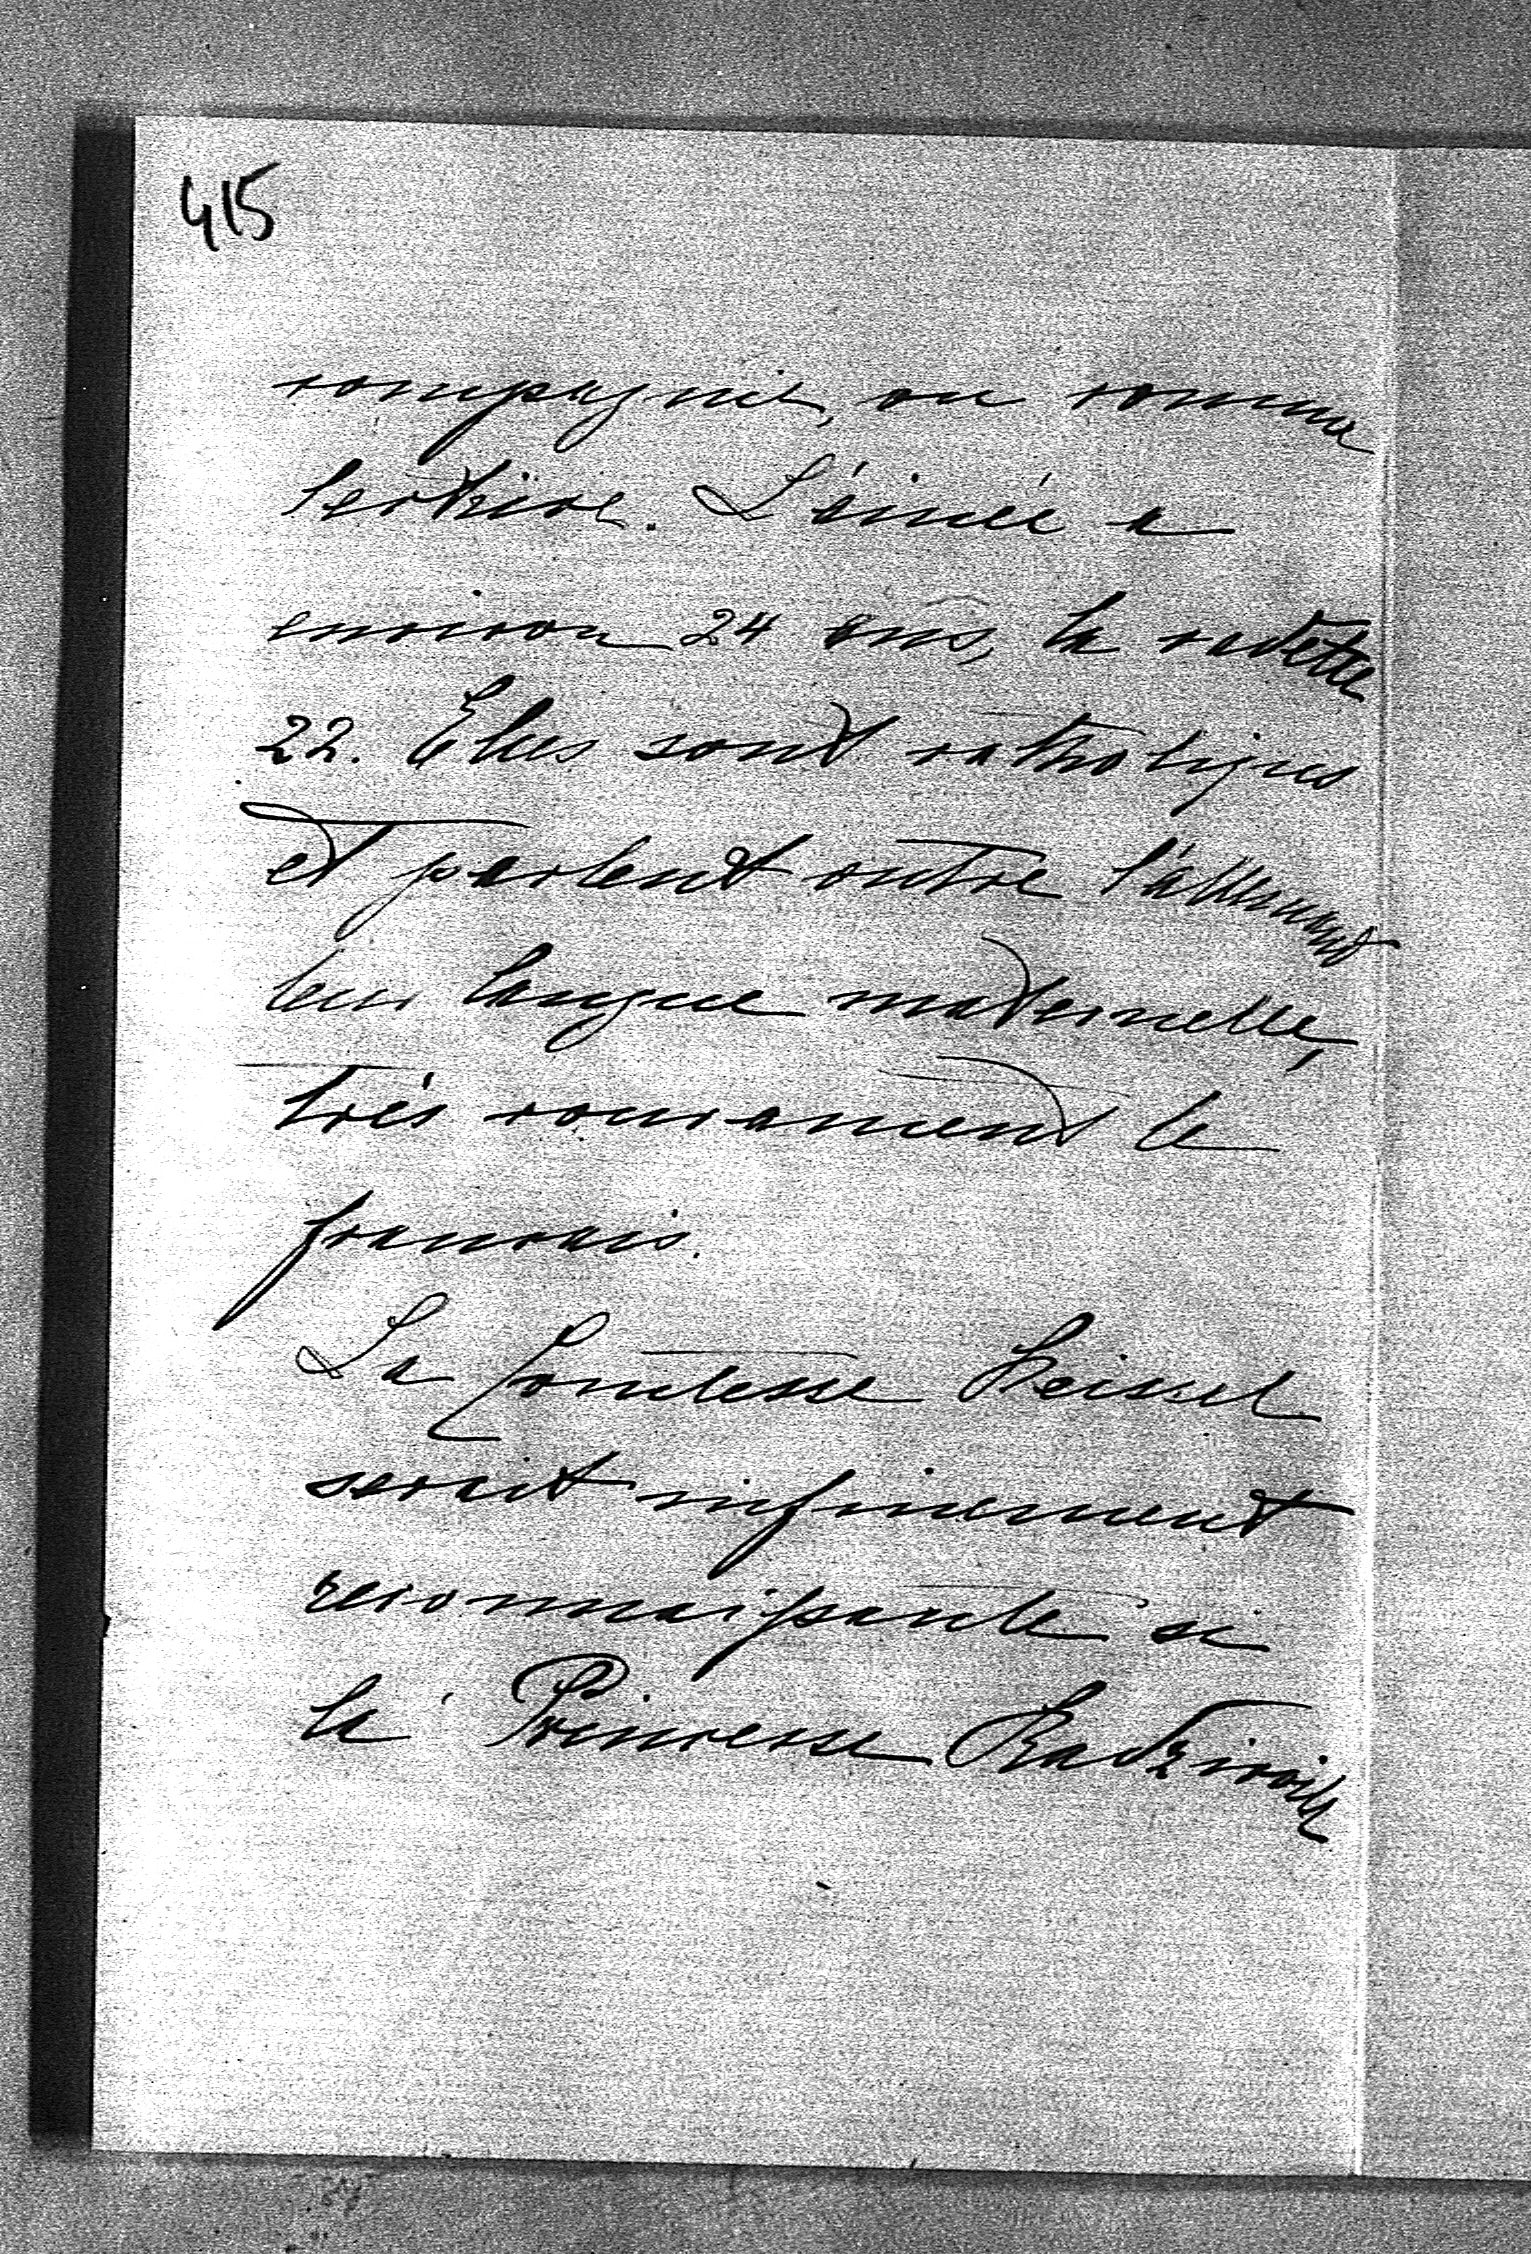 415
compagnie, ou comme
lectrice. L'ainée a
environ 24 ans, la cadette
22. Elles sont catholiques
et parlent outre l'allemand
leur langue maternelle,
très couramment le
français.
La Comtesse Beissel
serait infiniment
reconnaissante si
la Princesse Radziwill